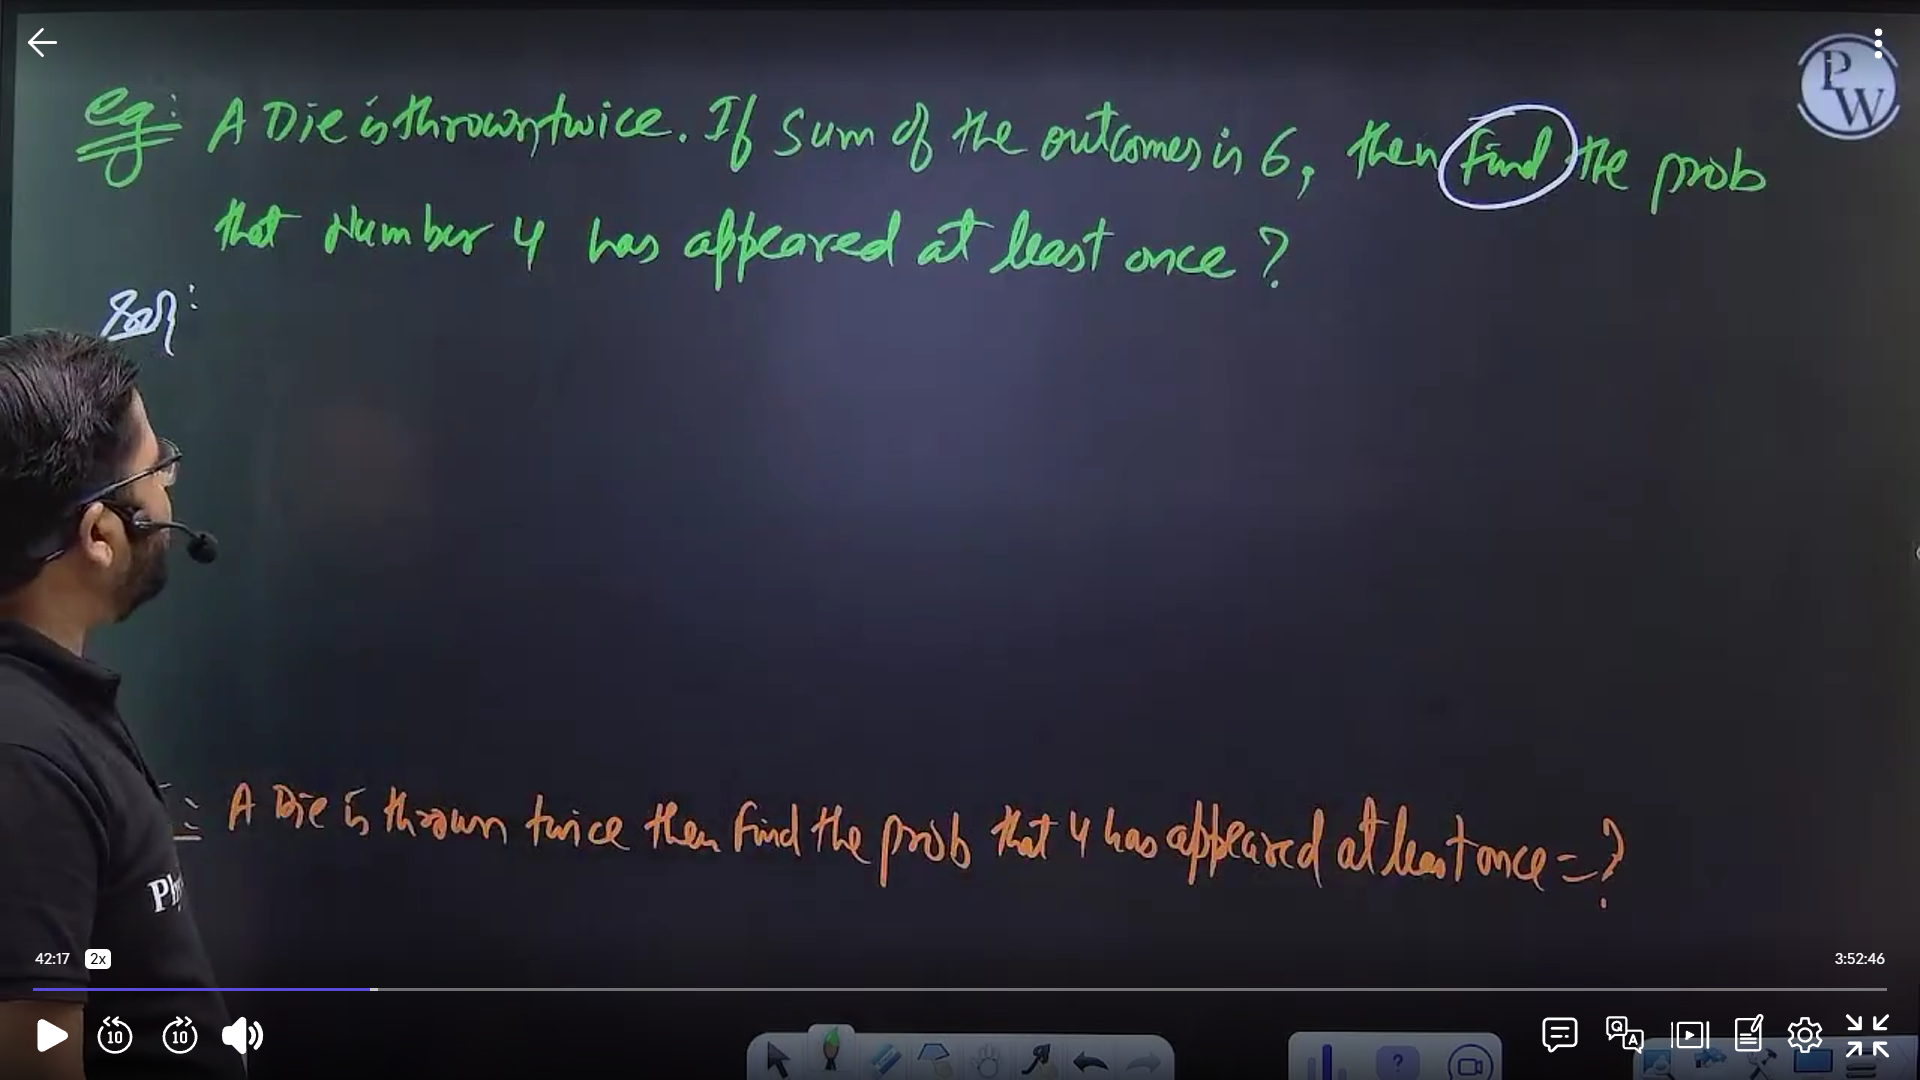 PW
eg: A Die is thrown twice. If Sum of the outcomes is 6, then find the prob
that Number 4 has appeared at least once ?
Sol:
A Die is thrown twice then find the prob that 4 has appeared at least once = ?
42:17 2x 3:52:46
10 10